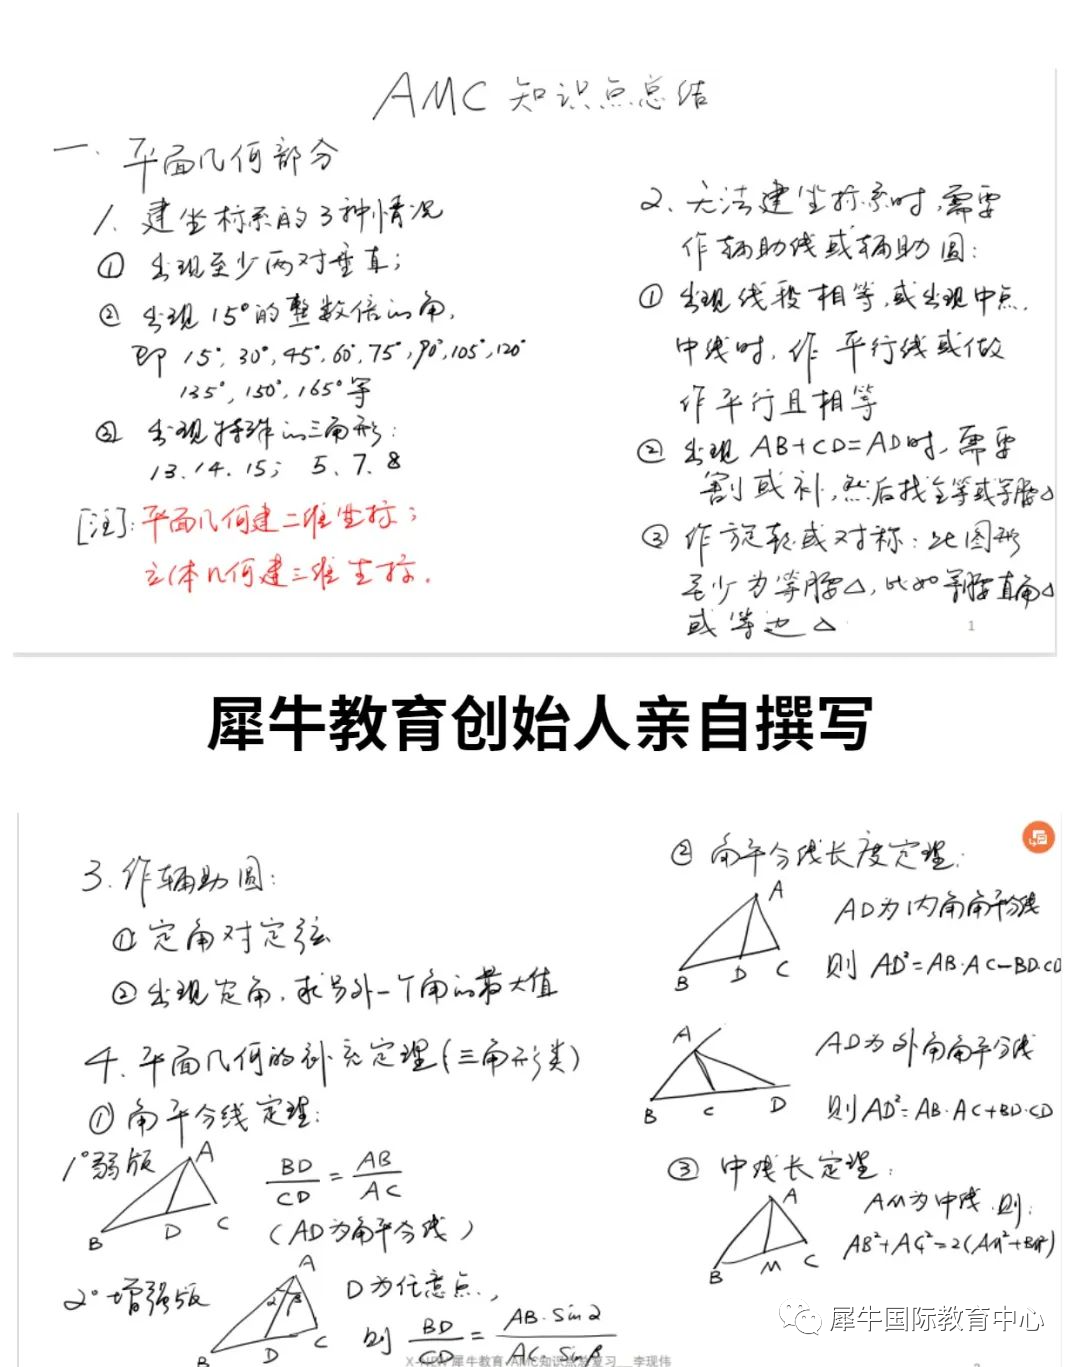 AMC 知识点总结
一. 平面几何部分
1. 建坐标系的3种情况
① 出现至少两对垂直;
② 出现15°的整数倍的角,
即 15°, 30°, 45°, 60°, 75°, 90°, 105°, 120°
135°, 150°, 165°等
③ 出现特殊的三角形:
13. 14. 15; 5. 7. 8
[注]: 平面几何建二维坐标;
立体几何建三维坐标.
2. 无法建坐标系时, 需要
作辅助线或辅助圆:
① 出现线段相等, 或出现中点.
中线时, 作 平行线或做
作平行且相等
② 出现 AB+CD=AD时, 需要
割或补, 然后找全等或等腰△
③ 作旋转或对称: 此图形
至少为等腰△, 比如等腰直角△
或等边△
1
犀牛教育创始人亲自撰写
3. 作辅助圆:
① 定角对定弦
② 出现定角, 求另外一个角的最大值
4. 平面几何的补充定理(三角形类)
① 角平分线定理:
1° 弱版
A
B
D
C
BD/CD = AB/AC
(AD为角平分线)
2° 增强版
A
α β
B
D
C
D为任意点,
则 BD/CD = AB·Sinα/AC·Sinβ
② 角平分线长度定理:
A
B
D
C
AD为内角角平分线
则 AD²=AB·AC-BD·CD
A
B
C
D
AD为外角角平分线
则 AD²=AB·AC+BD·CD
③ 中线长定理:
A
B
M
C
AM为中线. 则:
AB²+AC²=2(AM²+BM²)
犀牛国际教育中心
X-NEW 犀牛教育·AMC知识点总复习__李现伟